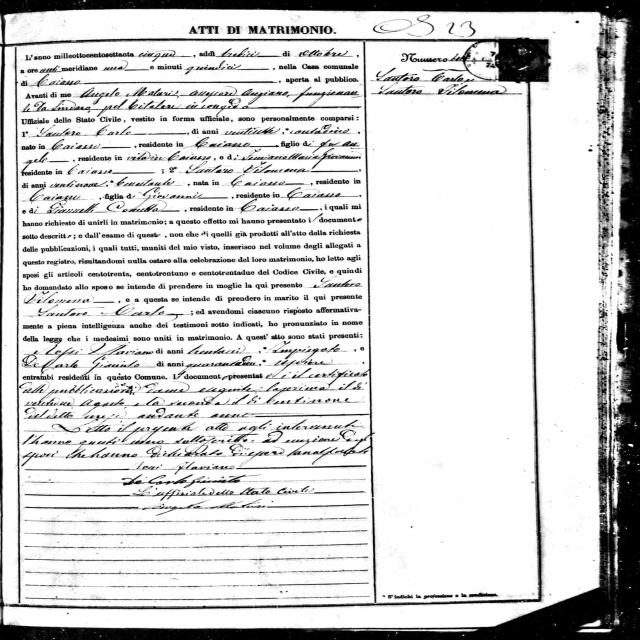 ATTI DI MATRIMONIO.
23
L'anno millottocentosettanta cinque, addì tredici di Ottobre,
a ore anti meridiane una e minuti quindici, nella Casa comunale
di Caiazzo, aperta al pubblico.
Avanti di me Angelo Assessore Anziano, funzionan
te da Sindaco, pel
Uffiziale dello Stato Civile, vestito in forma uffiziale, sono personalmente comparsi:
1° Santoro Carlo, di anni ventisette, contadino,
nato in Caiazzo, residente in Caiazzo, figlio di fu An
gelo, residente in vita in Caiazzo, e di Maria Giovanna
residente in Caiazzo; 2° Santoro Filomena,
di anni ventinove, nata in Caiazzo, residente in
Caiazzo, figlia di Giovanni, residente in Caiazzo
e di, residente in Caiazzo, i quali mi
hanno richiesto di unirli in matrimonio; a questo effetto mi hanno presentato i document
sotto descritti; e dall'esame di questi, non che di quelli già prodotti all'atto della richiesta
delle pubblicazioni, i quali tutti, muniti del mio visto, inserisco nel volume degli allegati a
questo registro, risultandomi nulla ostare alla celebrazione del loro matrimonio, ho letto agli
sposi gli articoli centotrenta, centotrentuno e centotrentadue del Codice Civile, e quindi
ho domandato allo sposo se intende di prendere in moglie la qui presente Santoro
Filomena, e a questa se intende di prendere in marito il qui presente
Santoro Carlo; ed avendomi ciascuno risposto affermativa-
mente a piena intelligenza anche dei testimoni sotto indicati, ho pronunziato in nome
della legge che i medesimi sono uniti in matrimonio. A quest'atto sono stati presenti:
Flaviano di anni, Impiegato, e
De Carlo Giacinto di anni quarantadue,
entrambi residenti in questo Comune. I document presentati il certificato
delle pubblicazioni eseguite la prima il dì
Agosto e la seconda il dì ventinove
andante anno
Letto il presente atto agli intervenuti
l'hanno sottoscritto ad eccezione degli
sposi che hanno dichiarato di essere analfabeti
Flaviano
De Carlo Giacinto
L'uffiziale dello Stato Civile
Angelo
Numero
Santoro Carlo e
Santoro Filomena
* S'indichi la professione o la condizione.